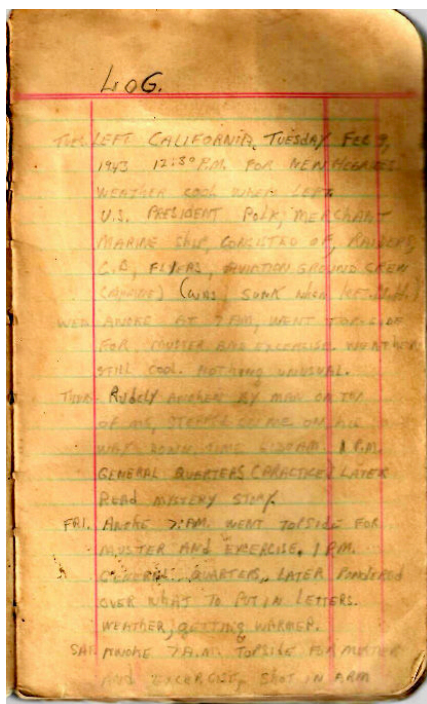 LOG.
TUES. LEFT CALIFORNIA, TUESDAY FEB 9,
1943 12:30 P.M. FOR NEW HEBRIDES
WEATHER COOL WHEN LEFT.
U.S. PRESIDENT POLK, MERCHANT
MARINE SHIP, CONSISTED OF, RAIDERS,
C.B, FLYERS, AVIATION GROUND CREW
(MARINE) (WAS, SUNK WHEN LEFT
WED AWOKE AT 7 AM, WENT TOPSIDE
FOR, MUSTER AND EXCERCISE. WEATHER
STILL COOL. NOTHING UNUSUAL.
THUR- RUDELY AWOKEN BY MAN ON TOP
OF ME, STEPPED ON ME ON HIS
WAY DOWN, TIME 6:30 AM. 1 P.M.
GENERAL QUARTERS (PRACTICE) LATER
READ MYSTERY STORY.
FRI. AWOKE 7:AM. WENT TOPSIDE FOR
MUSTER AND EXERCISE, 1 PM.
GENERAL QUARTERS, LATER PONDERED
OVER WHAT TO PUT IN LETTERS.
WEATHER, GETTING WARMER.
SAT. AWOKE 7 A.M. TOPSIDE FOR MUSTER
AND EXCERCISE, SHOT IN ARM